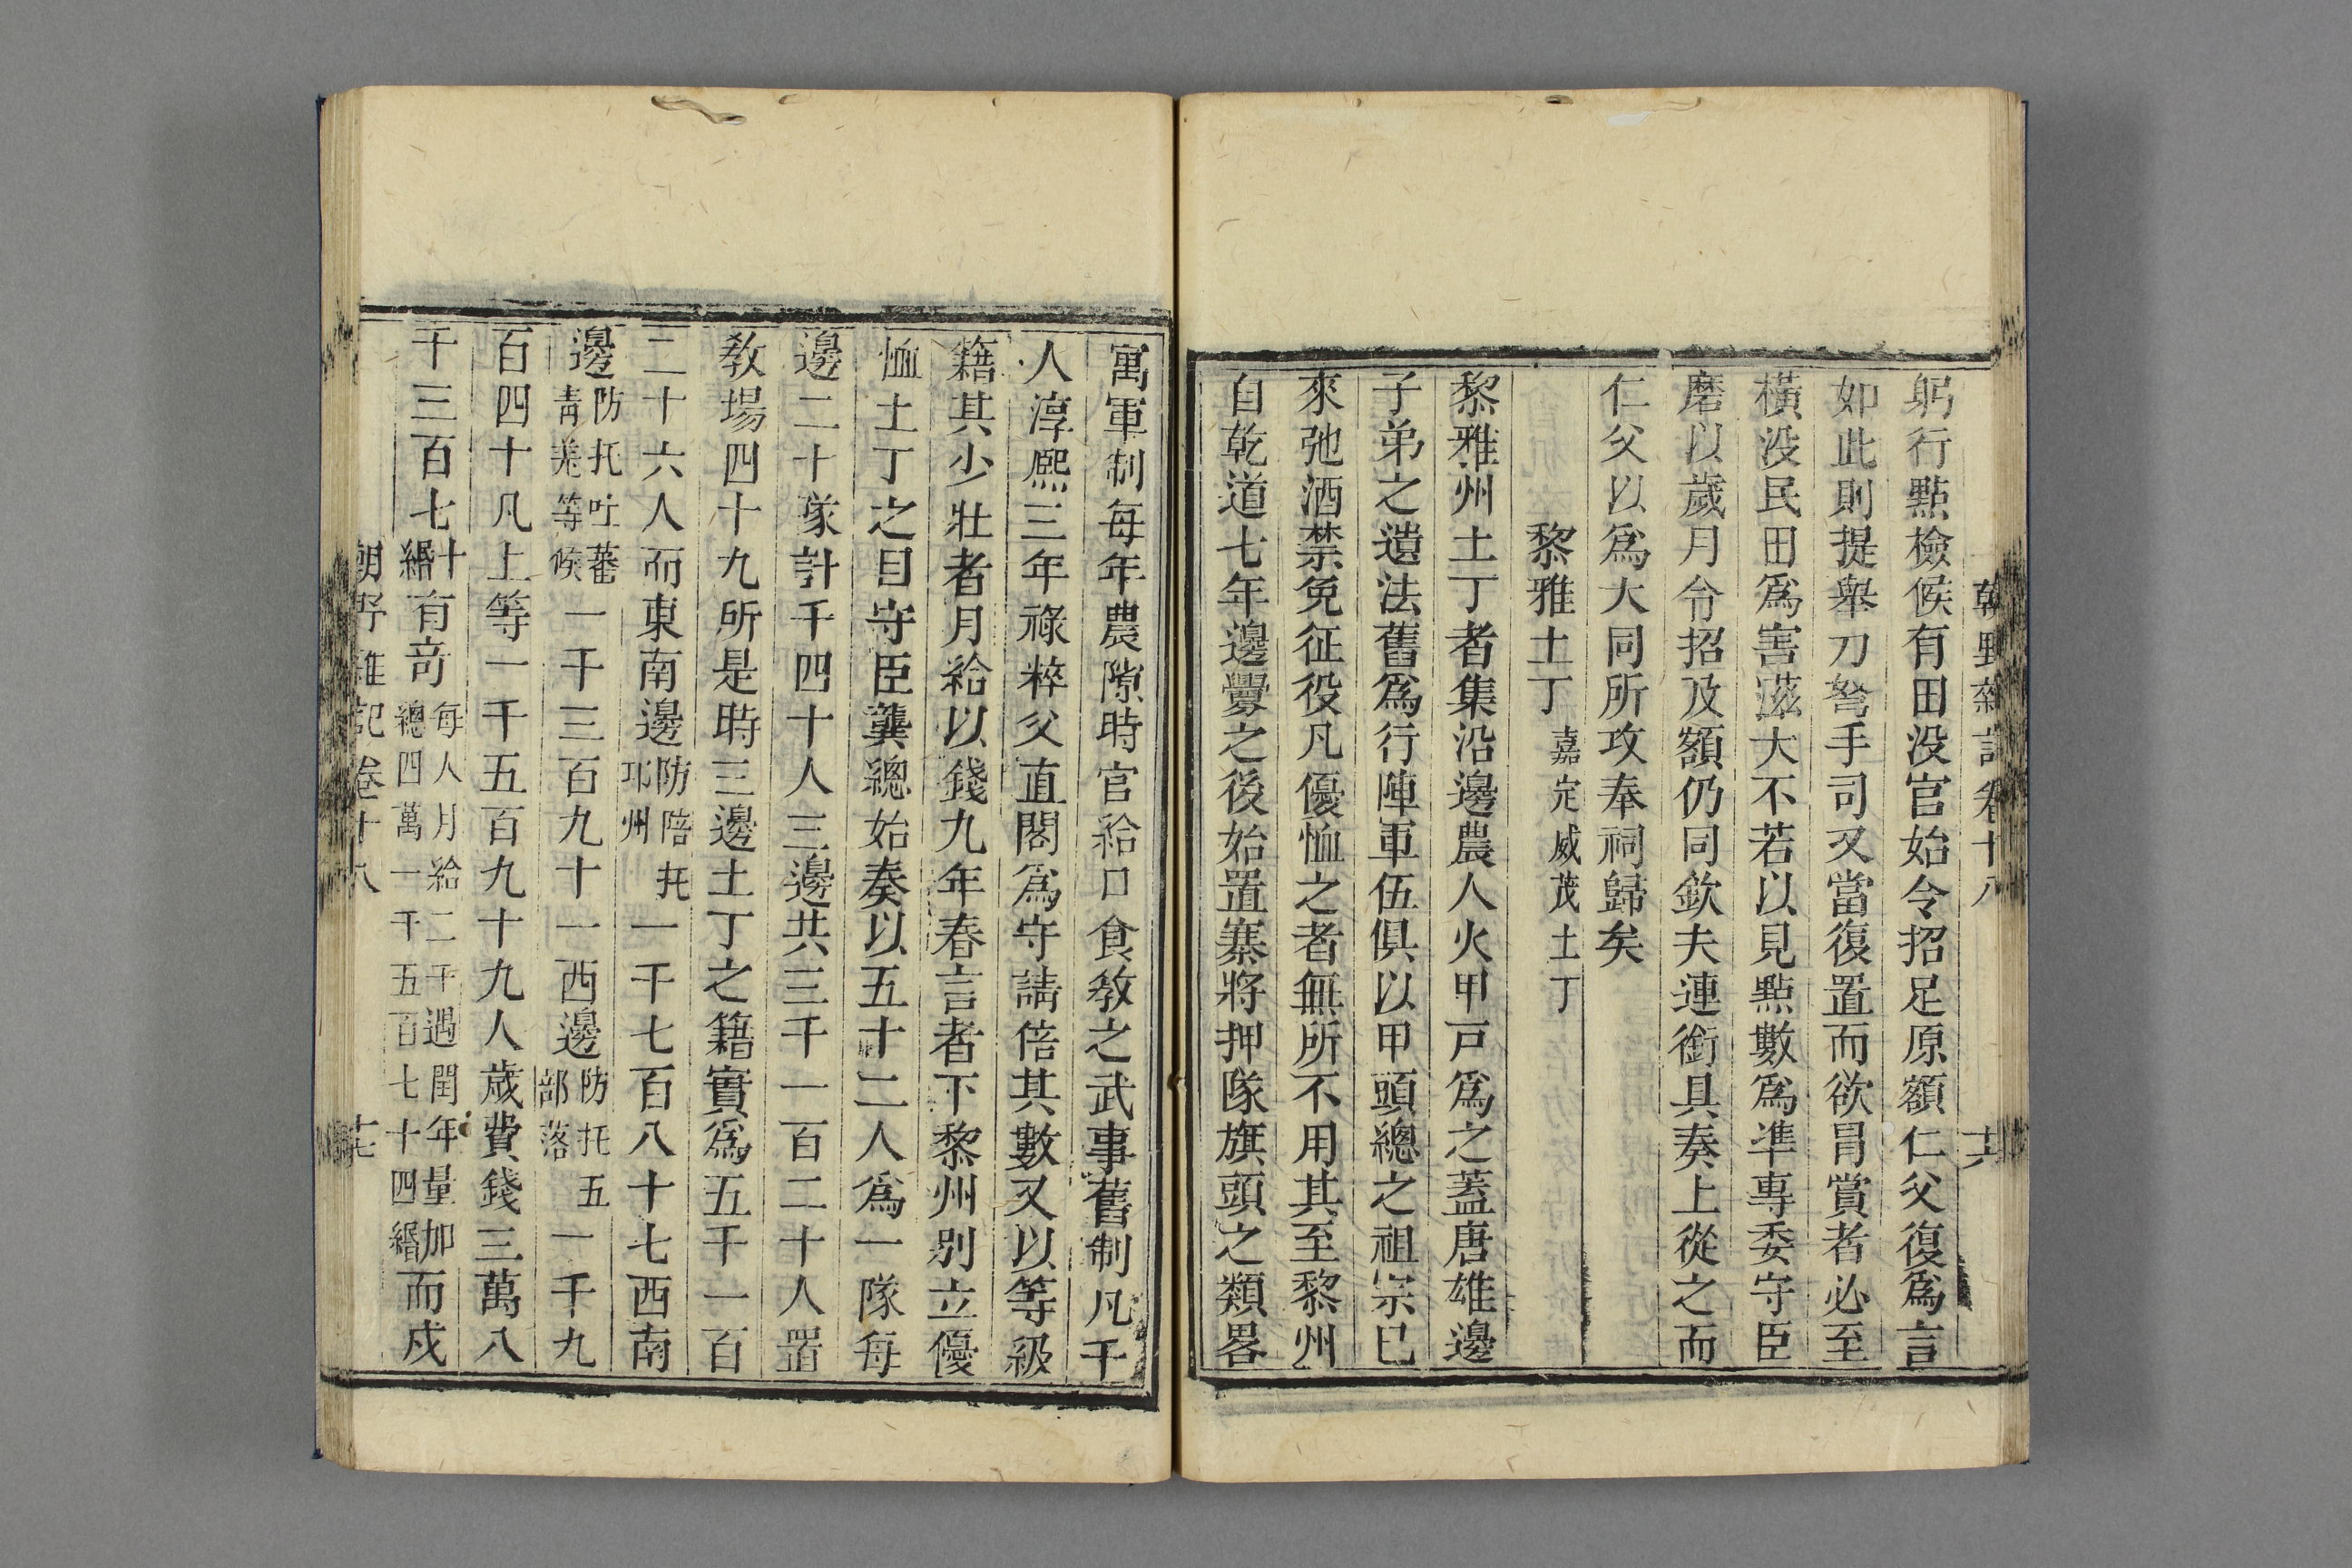 朝野雜記卷十八 十六
躬行點檢候有田没官始令招足原額仁父復爲言
如此則提舉刀弩手司又當復置而欲冒賞者必至
橫没民田爲害滋大不若以見點數爲準專委守臣
磨以歲月令招及額仍同欽夫連銜具奏上從之而
仁父以爲大同所攻奉祠歸矣
黎雅土丁 嘉定威茂土丁
黎雅州土丁者集沿邊農人火甲戸爲之蓋唐雄邊
子弟之遺法舊爲行陣軍伍俱以甲頭總之祖宗已
來弛酒禁免征役凡優恤之者無所不用其至黎州
自乾道七年邊釁之後始置寨將押隊旗頭之類畧
寓軍制每年農隙時官給口食敎之武事舊制凡千
人淳熙三年祿粹父直閣爲守請倍其數又以等級
籍其少壯者月給以錢九年春言者下黎州别立優
恤土丁之目守臣龔總始奏以五十二人爲一隊每
邊二十隊計千四十人三邊共三千一百二十人置
敎場四十九所是時三邊土丁之籍實爲五千一百
二十六人而東南邊防陪托邛州一千七百八十七西南
邊防托吐蕃青羌等候一千三百九十一西邊防托五部落一千九
百四十凡上等一千五百九十九人歲費錢三萬八
千三百七十緡有奇每人月給二千遇閏年量加總四萬一千五百七十四緡而戍
朝野雜記卷十八 十七